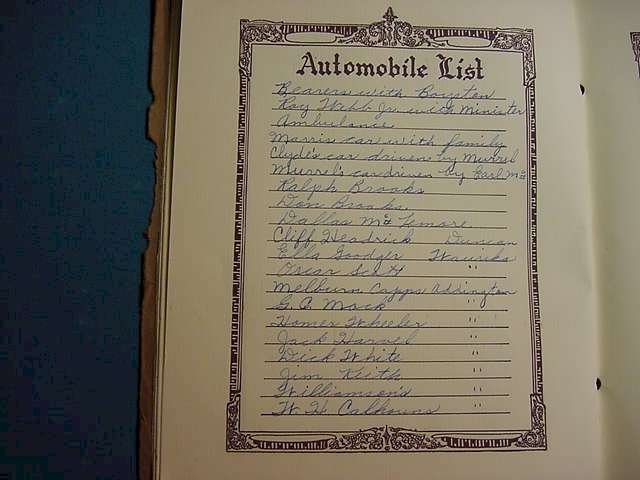 Automobile List
Bearers with Boysten
Roy Webb Jr. with Minister
Ambulance
Morris car with family
Clyde's car driven by Murrel
Murrel's car driven by Earl Mc
Ralph Brooks
Don Brooks
Dallas McLemore
Cliff Headrick Duncan
Ella Goodger Waurika
Oscar Scott "
Melburn Capps Addington
G. C. Mack "
Homer Wheeler "
Jack Harvel "
Dick White "
Jim Keith "
Williamsons "
W. H. Calhouns "